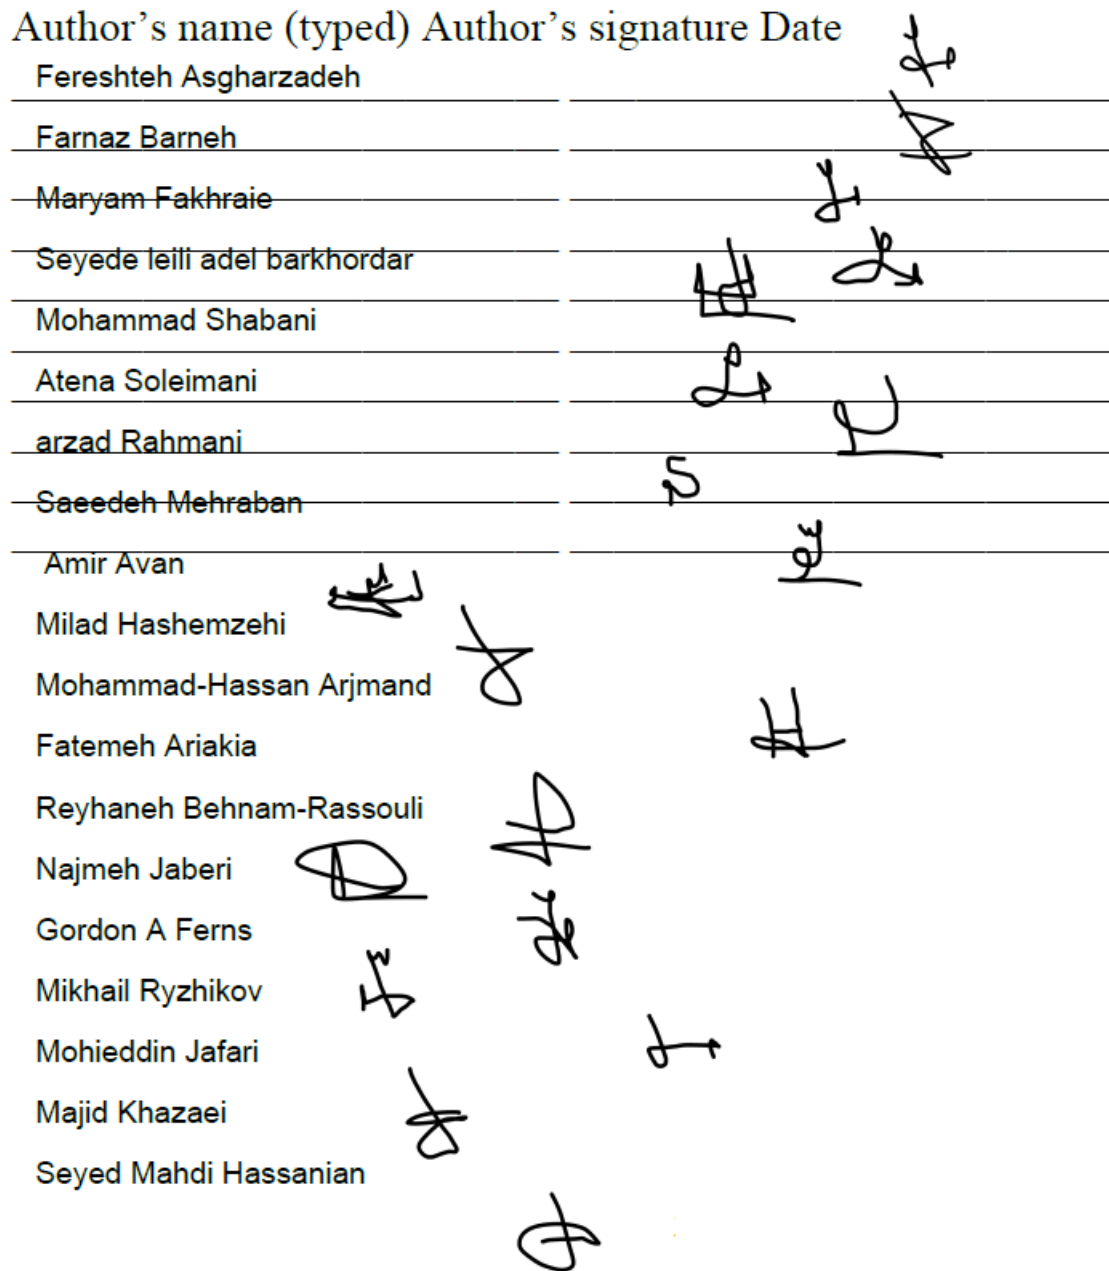 Author’s name (typed) Author’s signature Date
Fereshteh Asgharzadeh
Farnaz Barneh
Maryam Fakhraie
Seyede leili adel barkhordar
Mohammad Shabani
Atena Soleimani
arzad Rahmani
Saeedeh Mehraban
Amir Avan
Milad Hashemzehi
Mohammad-Hassan Arjmand
Fatemeh Ariakia
Reyhaneh Behnam-Rassouli
Najmeh Jaberi
Gordon A Ferns
Mikhail Ryzhikov
Mohieddin Jafari
Majid Khazaei
Seyed Mahdi Hassanian